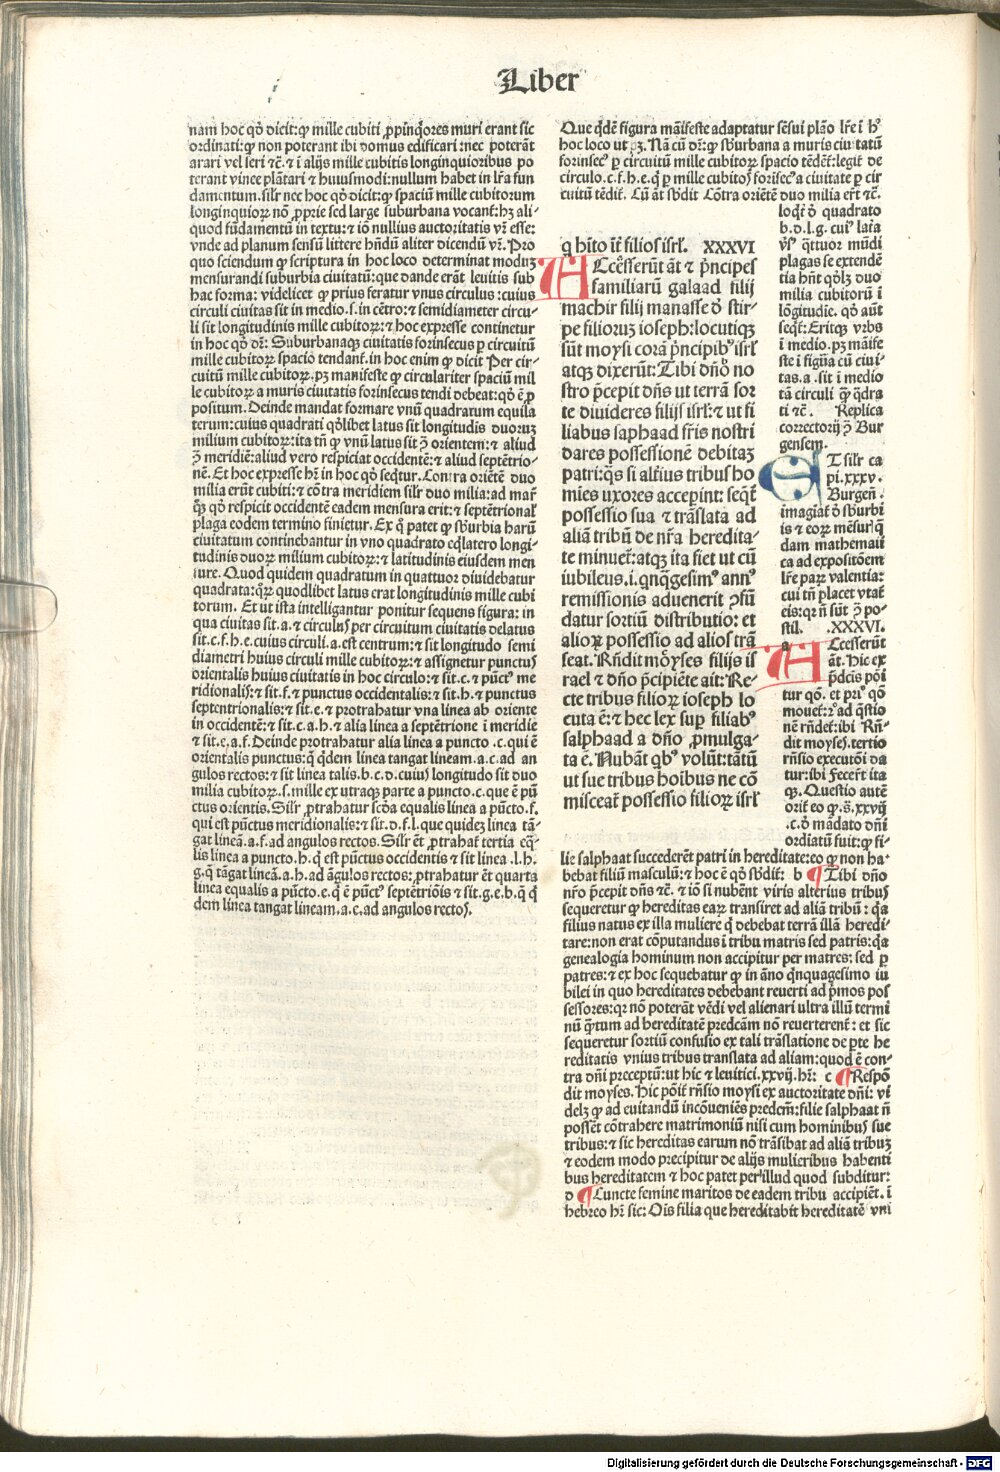 Liber
nam hoc qḋ dicit:ꝙ mille cubiti ꝓpinq̇ores muri erant sic
ordinati:ꝙ non poterant ibi domus edificari:nec poterāt
arari vel seri ⁊c̄.⁊ i alijs mille cubitis longinquioribus po
terant vinee plātari ⁊ huiusmodi:nullum habet in lr̄a fun
damentum.silr̄ nec hoc qḋ dicit:ꝙ spaciū mille cubitorum
longinquioꝝ nō ꝓprie sed large suburbana vocant̄:hꝫ ali⸗
quod fūdamentū in textu:⁊ iō nullius auctoritatis vr̄ esse:
vnde ad planum sensū littere hn̄dū aliter dicendū vr̄. Pro
quo sciendum ꝙ scriptura in hoc loco determinat moduꝫ
mensurandi suburbia ciuitatū:que dande erāt leuitis sub
hac forma: videlicet ꝙ prius feratur vnus circulus:cuius
circuli ciuitas sit in medio.s.in cētro:⁊ semidiameter circu⸗
li sit longitudinis mille cubitoꝝ:⁊ hoc expresse continetur
in hoc qḋ dr̄: Suburbanaqꝫ ciuitatis forinsecus ꝑ circuitū
mille cubitoꝝ spacio tendant̄.in hoc enim ꝙ dicit Per cir⸗
cuitū mille cubitoꝝ.pꝫ manifeste ꝙ circulariter spaciū mil
le cubitoꝝ a muris ciuitatis forinsecus tendi debeat:qḋ ē ꝓ
positum. Deinde mandat formare vnū quadratum equila
terum:cuius quadrati qḋlibet latus sit longitudis duoruꝫ
milium cubitoꝝ:ita tn̄ ꝙ vnū latus sit ꝯ orientem:⁊ aliud
ꝯ meridiē:aliud vero respiciat occidentē:⁊ aliud septētrio⸗
nē. Et hoc expresse hr̄ in hoc qḋ seq̄tur. Contra oriētē duo
milia erūt cubiti:⁊ cōtra meridiem silr̄ duo milia:ad mar̄
q̄ꝫ qḋ respicit occidentē eadem mensura erit:⁊ septētrional̄
plaga eodem termino finietur. Ex q̇ patet ꝙ sb̄urbia harū
ciuitatum continebantur in vno quadrato eq̄latero longi⸗
tudinis duoꝝ milium cubitoꝝ:⁊ latitudinis eiusdem men
sure. Quod quidem quadratum in quattuor diuidebatur
quadrata:qr̄ quodlibet latus erat longitudinis mille cubi
torum. Et ut ista intelligantur ponitur sequens figura: in
qua ciuitas sit.a.⁊ circulus per circuitum ciuitatis delatus
sit.c.f.h.e.cuius circuli.a.est centrum:⁊ sit longitudo semi
diametri huius circuli mille cubitoꝝ:⁊ assignetur punctus
orientalis huius ciuitatis in hoc circulo:⁊ sit.c.⁊ pūct⁹ me
ridionalis:⁊ sit.f.⁊ punctus occidentalis:⁊ sit.h.⁊ punctus
septentrionalis:⁊ sit.e.⁊ protrahatur vna linea ab oriente
in occidentē:⁊ sit.c.a.h.⁊ alia linea a septētrione i meridiē
⁊ sit.e.a.f. Deinde protrahatur alia linea a puncto .c.qui ē
orientalis punctus:q̄ q̇dem linea tangat lineam.a.c.ad an
gulos rectos:⁊ sit linea talis.b.c.d.cuius longitudo sit duo
milia cubitoꝝ.s.mille ex utraqꝫ parte a puncto.c.que ē pū
ctus orientis. Silr̄ ꝓtrahatur scḋa equalis linea a pūcto.f.
qui est pūctus meridionalis:⁊ sit.d.f.l.que quideꝫ linea tā⸗
gat lineā.a.f.ad angulos rectos. Silr̄ ēt ꝓtrahat̄ tertia eq̄⸗
lis linea a puncto.h.q̇ est pūctus occidentis ⁊ sit linea .l.h.
g.q̄ tāgat lineā.a.h.ad āgulos rectos:ꝓtrahatur ēt quarta
linea equalis a pūcto.e.q̇ ē pūct⁹ septētriōis ⁊ sit.g.e.b.q̄ q̇
dem linea tangat lineam.a.e.ad angulos rectos.
Que q̇dē figura māifeste adaptatur sēsui plāo lr̄e i h⁹
hoc loco ut pꝫ. Nā cū dr̄:ꝙ sb̄urbana a muris ciuitatū
forinsec⁹ ꝑ circuitū mille cubitoꝝ spacio tēdēt̄:legit̄ de
circulo.c.f.h.e.q̇ ꝑ mille cubitos forīsec⁹ a ciuitate ꝑ cir
cuitū tēdit̄. Cū āt sb̄dit Cōtra oriētē duo milia er̄t ⁊c̄.
loq̄t̄ ḋ quadrato
b.d.l.g. cui⁹ lat̄a
v̄s⁹ q̄ttuor mūdi
plagas se extendē
tia hn̄t qḋlꝫ duo
milia cubitorū i
lōgitudīe. qḋ aūt
seq̄t̄: Eritqꝫ vrbs
i medio.pꝫ māife
ste i figūa cū ciui⸗
tas.a.sit i medio
tā circuli q̄ꝫ q̄dra
ti ⁊c̄. Replica
correctorij ꝯ Bur
gensem.
ET silr̄ ca
pi.xxxv.
Burgen̄.
imagiat̄ ḋ sb̄urbi
is ⁊ eoꝝ mēsur̄ q̄
dam mathemati
ca ad expositōem
lr̄e paꝝ valentia:
cui tn̄ placet vtat̄
eis:qr̄ n̄ sūt ꝯ po⸗
stil. .XXXVI.
a
ACcesserūt
āt. Hic ex
p̄dcis pōi
tur qō. et pri⁹ qō
mouet̄:2⁰ ad q̄stio
nē rn̄det̄:ibi Rn̄⸗
dit moyses.tertio
rn̄sio executōi da
tur:ibi Fecer̄t ita
qꝫ. Questio autē
orit̄ eo ꝙ.s̄.xxvij
.c.ḋ mādato dn̄i
ordiatū fuit:ꝙ fi⸗
q hīto ir̄ filios isrl̄. XXXVI
ACcēsserūt āt ⁊ p̄ncipes
familiarū galaad filij
machir filij manasse ḋ stir⸗
pe filioruꝫ ioseph:locutiqꝫ
sūt moysi corā p̄ncipib⁹ isrl̄
atqꝫ dixerūt: Tibi dn̄o no
stro p̄cepit dn̄s ut terrā sor
te diuideres filijs isrl̄:⁊ ut fi
liabus saphaad fr̄is nostri
dares possessionē debitaꝫ
patri:q̄s si alti⁹ tribus ho
mies uxores accepint: seq̄t̄
possessio sua ⁊ trāslata ad
aliā tribū de nr̄a heredita⸗
te minuet̄:atqꝫ ita fiet ut cū
iubileus.i.qnq̄gesim⁹ ann⁹
remissionis aduenerit ꝯfū
datur sortiū distributio: et
alioꝝ possessio ad alios trā
seat. Rn̄dit mōyses filijs is
rael ⁊ dn̄o p̄cipiēte ait: Re⸗
cte tribus filioꝝ ioseph lo
cuta ē:⁊ hec lex suꝑ filiab⁹
salphaad a dn̄o ꝓmulga⸗
ta ē. Nubāt qb⁹ volūt:tātū
ut sue tribus hoībus ne cō
misceat̄ possessio filioꝝ isrl̄
lie salphaat succederēt patri in hereditate:eo ꝙ non ha⸗
bebat filiū masculū:⁊ hoc ē qḋ sb̄dit̄: b ¶ Tibi dn̄o
nr̄o p̄cepit dn̄s ⁊c̄. ⁊ iō si nubēnt viris alterius tribus
sequeretur ꝙ hereditas eaꝝ transiret ad aliā tribū : q̄a
filius natus ex illa muliere q̄ debebat terrā illā heredi⸗
tare:non erat cōputandus i tribu matris sed patris:q̄a
genealogia hominum non accipitur per matres: sed ꝑ
patres:⁊ ex hoc sequebatur ꝙ in āno q̄nquagesimo iu
bilei in quo hereditates debebant reuerti ad p̄mos pos
sessores:qr̄ nō poterāt vēdi vel alienari ultra illū termi
nū q̄ꝫtum ad hereditatē predcām nō reuerterent̄: et sic
sequeretur sortiū confusio ex tali trāslatione de ꝑte he
reditatis vnius tribus translata ad aliam:quod ē con⸗
tra dn̄i preceptū:ut hic ⁊ leuitici.xxvij.hr̄: c ¶ Respō
dit moyses. Hic pōit̄ rn̄sio moysi ex auctoritate dn̄i: vi
delꝫ ꝙ ad euitandū incōueniēs predcm̄:filie salphaat n̄
possēt cōtrahere matrimoniū nisi cum hominibus sue
tribus:⁊ sic hereditas earum nō trāsibat ad aliā tribuꝫ
⁊ eodem modo precipitur de alijs mulieribus habenti
bus hereditatem ⁊ hoc patet per illud quod subditur:
d ¶ Cuncte femine maritos de eadem tribu accipiēt. i
hebreo hr̄ sic: Ois filia que hereditabit hereditatē vni
Digitalisierung gefördert durch die Deutsche Forschungsgemeinschaft - DFG